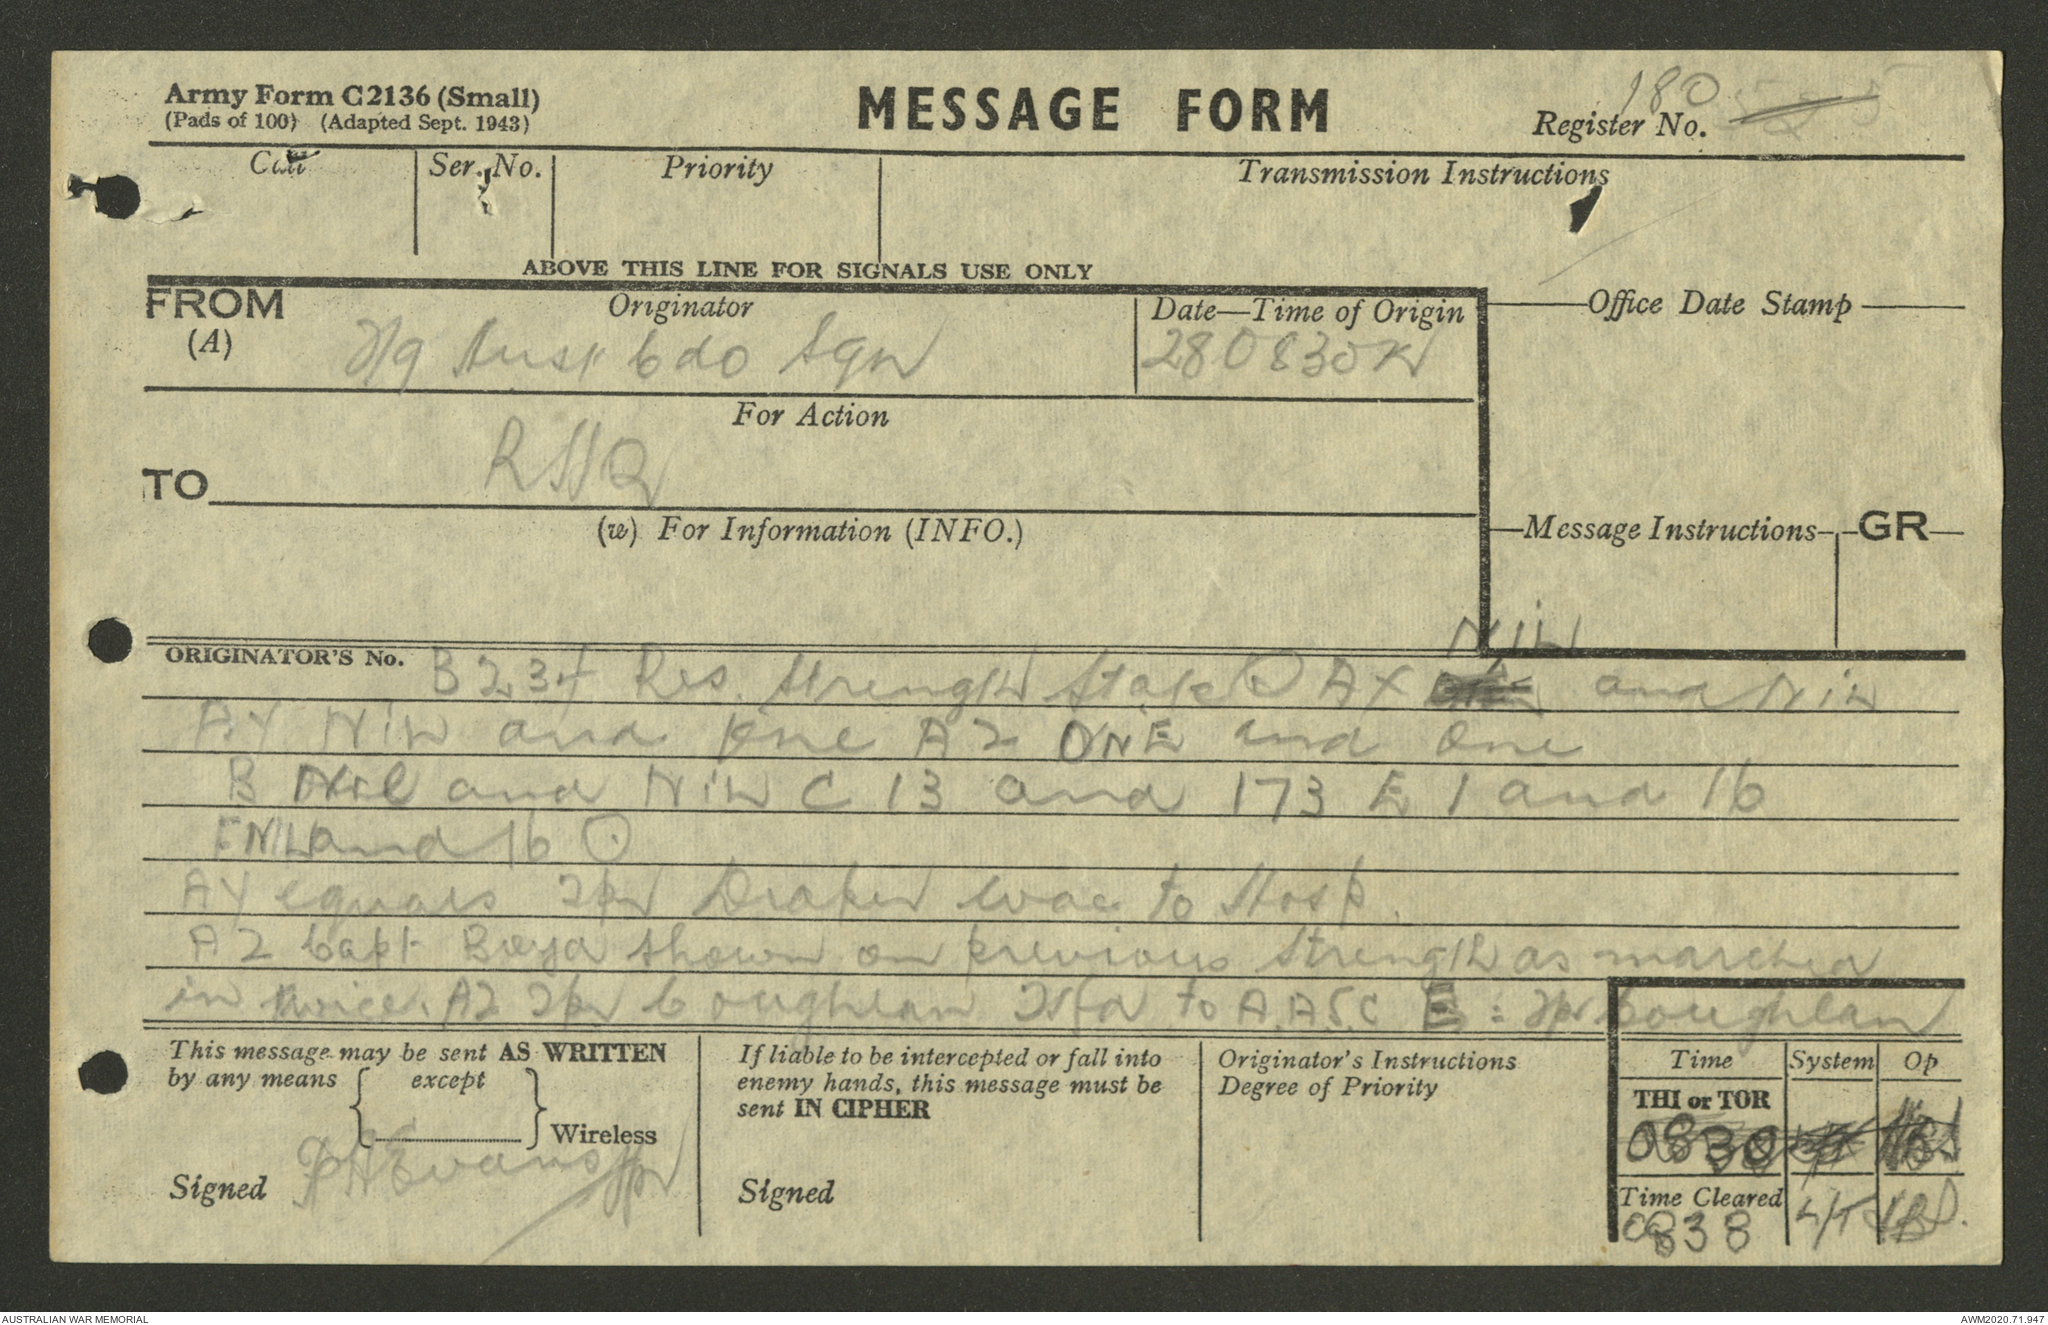 Army Form C2136 (Small)
(Pads of 100) (Adapted Sept. 1943)
MESSAGE FORM
180
Register No.
Call
Ser. No.
Priority
Transmission Instructions
ABOVE THIS LINE FOR SIGNALS USE ONLY
FROM
(A)
Originator
2/9 Aust Cdo Sqn
Date—Time of Origin
280830K
Office Date Stamp
For Action
TO
RHQ
(w) For Information (INFO.)
Message Instructions
GR
NIL
ORIGINATOR'S No. B234 Res. Strength State AX and NIL
AY NIL and one AZ ONE and one
B Nil and NIL C 13 and 173 E 1 and 16
F NIL and 16
AY equals Tpr Draper evac to Hosp.
AZ Capt shown on previous strength as marched
in twice. AZ Tpr Coughlan Tsfd to AASC E : Tpr Coughlan
This message may be sent AS WRITTEN
by any means
except
Wireless
Signed
Evans Tpr
If liable to be intercepted or fall into
enemy hands, this message must be
sent IN CIPHER
Signed
Originator's Instructions
Degree of Priority
Time
System
Op
THI or TOR
0830
Time Cleared
0838
L/T
AUSTRALIAN WAR MEMORIAL
AWM2020.71.947